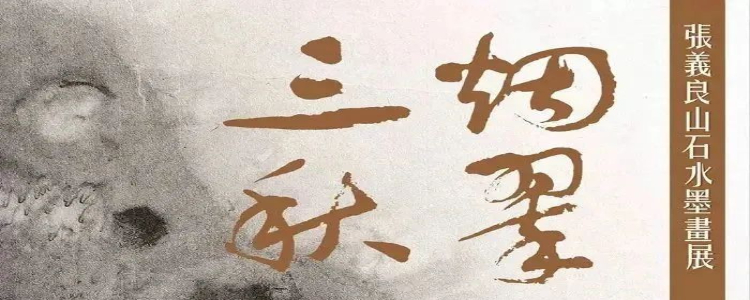 張義良山石水墨畫展
烟翠
三秋